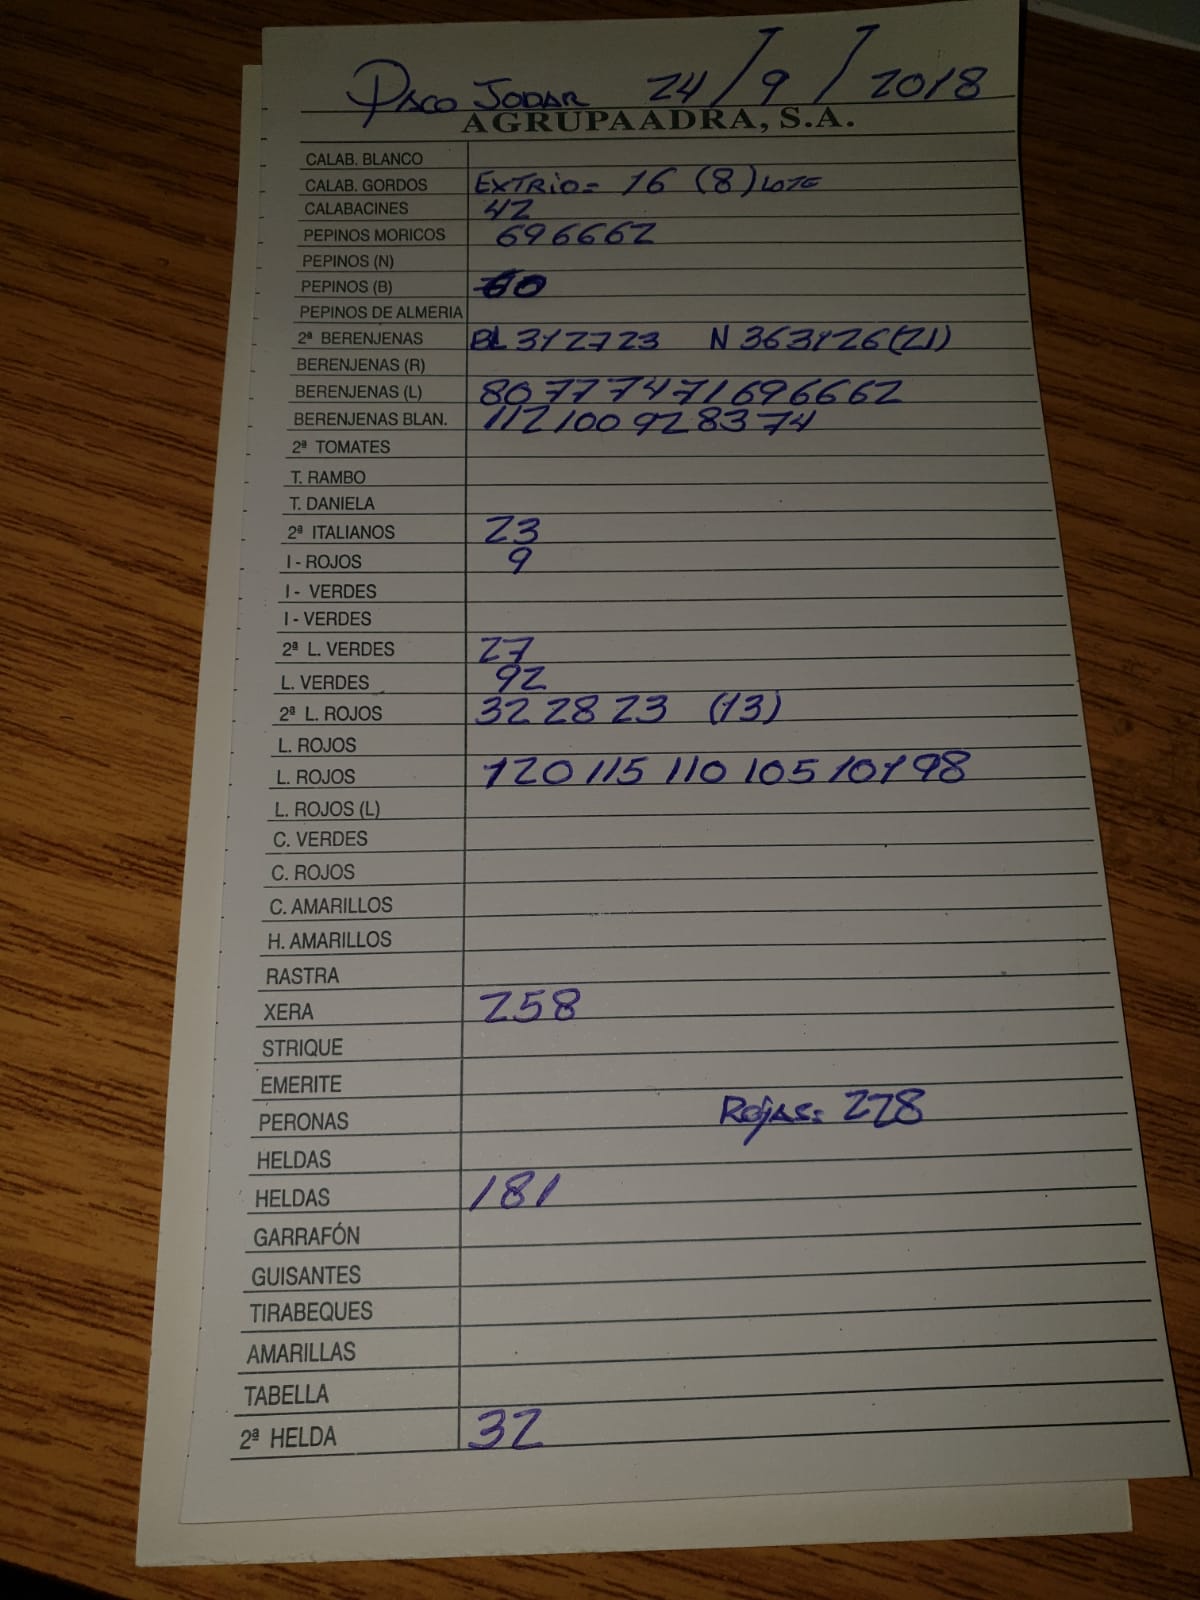 PACO JODAR 24/9/2018
AGRUPAADRA, S.A.
CALAB. BLANCO
CALAB. GORDOS EXTRIO= 16 (8) LOTE
CALABACINES 42
PEPINOS MORICOS 696662
PEPINOS (N)
PEPINOS (B) 60
PEPINOS DE ALMERIA
2ª BERENJENAS BL 312723 N 363126(21)
BERENJENAS (R)
BERENJENAS (L) 80777471696662
BERENJENAS BLAN. 112100928374
2ª TOMATES
T. RAMBO
T. DANIELA
2ª ITALIANOS 23
I - ROJOS 9
I - VERDES
I - VERDES
2ª L. VERDES 27
L. VERDES 92
2ª L. ROJOS 32 28 23 (13)
L. ROJOS
L. ROJOS 120 115 110 105 101 98
L. ROJOS (L)
C. VERDES
C. ROJOS
C. AMARILLOS
H. AMARILLOS
RASTRA
XERA 258
STRIQUE
EMERITE
PERONAS Rojas= 228
HELDAS
HELDAS 181
GARRAFÓN
GUISANTES
TIRABEQUES
AMARILLAS
TABELLA
2ª HELDA 32